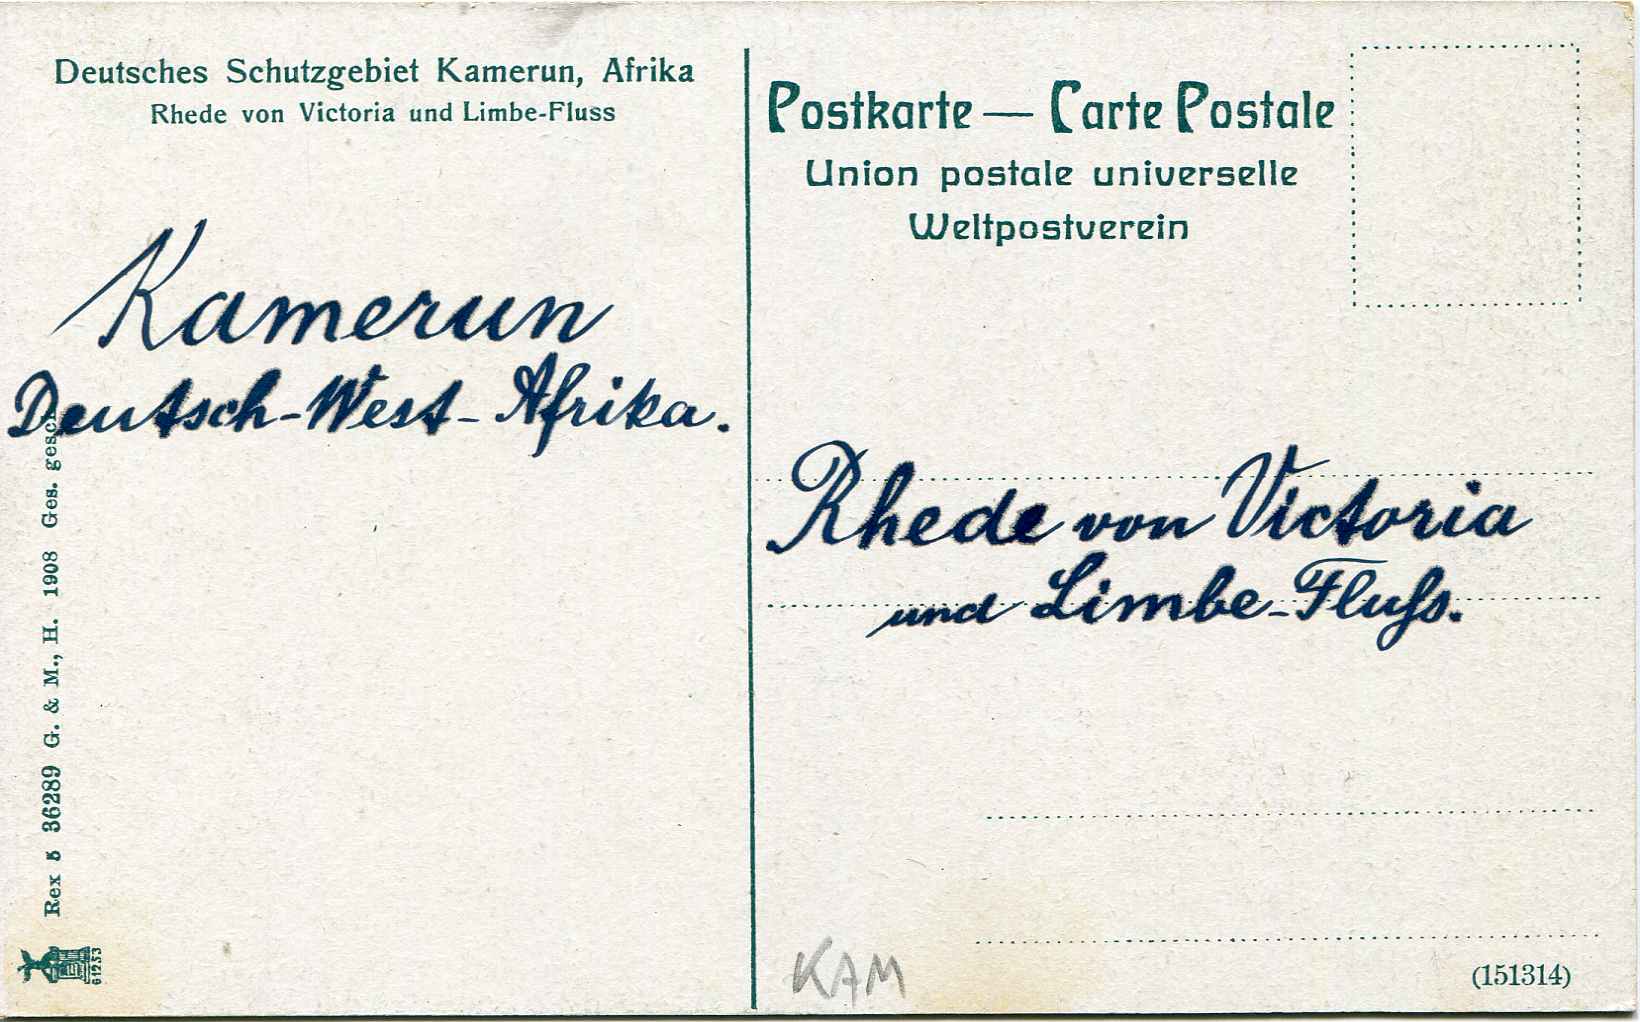 Deutsches Schutzgebiet Kamerun, Afrika
Rhede von Victoria und Limbe-Fluss
Kamerun
Deutsch-West-Afrika.
Rex 5 36289 G. & M., H. 1908 Ges. gesch.
61253
Postkarte — Carte Postale
Union postale universelle
Weltpostverein
Rhede von Victoria
und Limbe-Fluſs.
KAM
(151314)